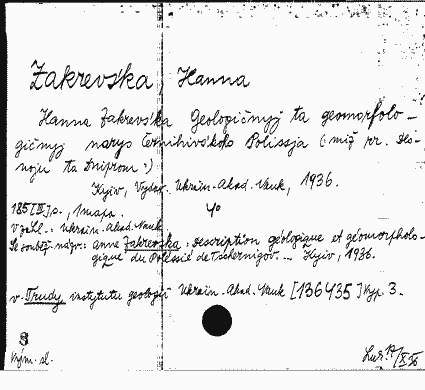 Zakrevśka, Hanna
Hanna Zakrevśka Geologičnyj ta geomorfolo-
gičnyj narys Černihivśkoho Polissja (: miž rr. Des-
noju ta Dniprom :)
Kyjiv, Vydav. Ukrain. Akad. Nauk, 1936.
185 [III] p., 1 mapa. 4°
V záhl.: Ukrain. Akad. Nauk
Se souběž. názv.: Anne Zakrevska: Description géologique et géomorpholo-
gique du Polessie de Tschernigov... Kyjiv, 1936.
v. Trudy instytutu geologiji Ukrain. Akad. Nauk [136435] Vyp. 3.
8
Vým. sl.